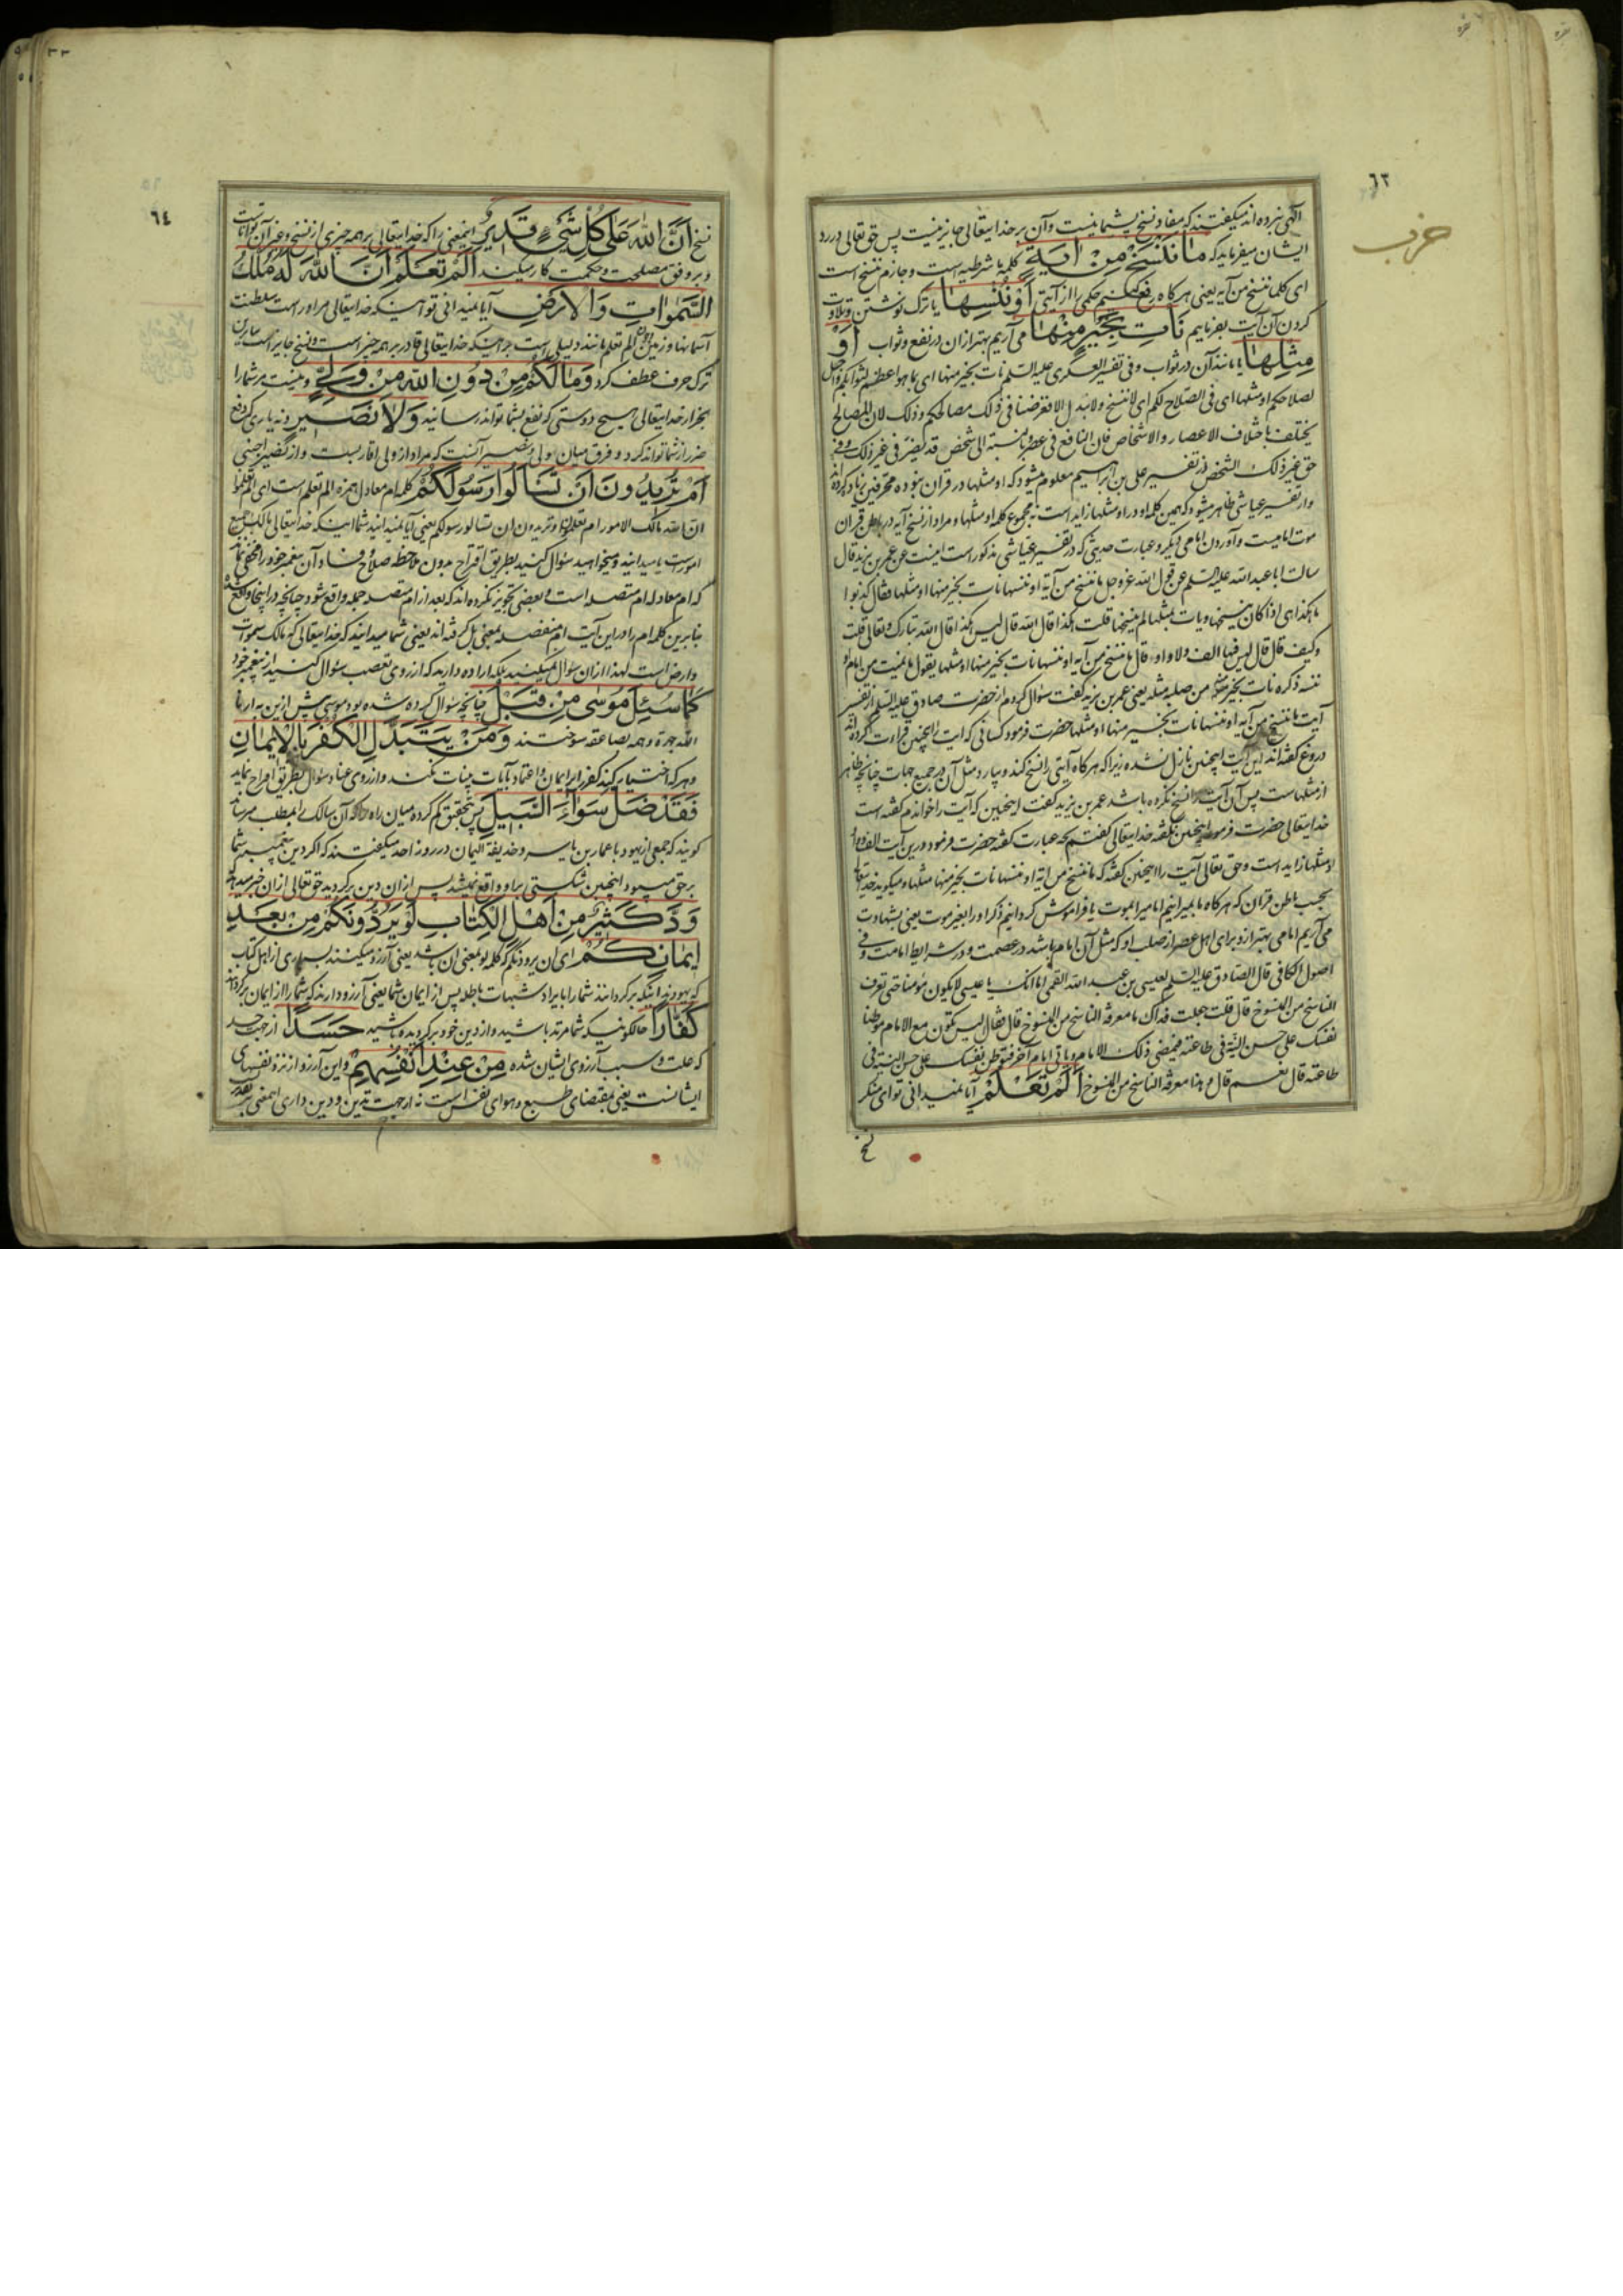 ٦٣
حزب
الهی نبرده اند میکفتند که مفاد نسخ پشیمانیست و آن بر خدایتعالی جایز نیست پس حق تعالی در رد
ایشان میفرماید که مَا نَنْسَخْ مِنْ اٰیَةٍ کلمه ما شرطیه است و جازم ننسخ است
ای کلما ننسخ من آیه یعنی هرکاه رفع کنیم حکمی را از آیتی اَوْ نُنْسِهَا یا ترک نوشتن و تلاوت
کردن آن آیت بفرماییم نَاْتِ بِخَیْرٍ مِنْهَا می آریم بهتر از ان در نفع و ثواب اَوْ
مِثْلِهَا یا مانند آن در ثواب و فی تفسیر العسکری علیه السلم نات بخیر منها ای بما هو اعظم لثوابکم و اجل
لصلاحکم او مثلها ای فی الصلاح لکم ای لا ننسخ ولا نبدل الا و غرضنا فی ذلک مصالحکم و ذلک لان المصالح
یختلف باختلاف الاعصار و الاشخاص فان النافع فی عصر و بالنسبة الی شخص قد یضر فی غیر ذلک و فی
حق غیر ذلک الشخص از تفسیر علی بن ابرهیم معلوم میشود که او مثلها در قران نبوده محرفین زیاد کرده اند
و از تفسیر عیاشی ظاهر میشود که همین کلمه او در او مثلها زاید است نه مجموع کلمه او مثلها و مراد از نسخ آیه در باطن قران
موت امامیست و آوردن امامی دیکر و عبارت حدیثی که در تفسیر عیاشی مذکور است اینست عن عمر بن یزید قال
سالت ابا عبد الله علیه السلم عن قول الله عز و جل ما ننسخ من آیة او ننسها نات بخیر منها او مثلها فقال کذبوا
ما هکذا هی اذا کان ینسخها و یات بمثلها لم ینسخها قلت هکذا قال الله قال لیس هکذا قال الله تبارک و تعالی قلت
و کیف قال قال لیس فیها الف و لا واو قال ما ننسخ من آیة او ننسها نات بخیر منها مثلها یقول ما نمیت من امام او
ننسه ذکره نات بخیر منه من صلبه مثله یعنی عمر بن یزید کفت سؤال کردم از حضرت صادق علیه السلم از تفسیر
آیت ما ننسخ من آیه او ننسها نات بخیر منها او مثلها حضرت فرمود کسانی که آیت را اینچنین قراءت کرده اند
دروغ کفته اند این آیت اینچنین نازل نشده زیرا که هرکاه آیتی را نسخ کند و بیارد مثل آن در جمیع جهات چنانچه ظاهر
از مثلهاست پس آن آیت را نسخ نکرده باشد عمر بن یزید کفت اینچنین که آیت را خواندم کفته است
خدایتعالی حضرت فرمود اینچنین نکفته خدایتعالی کفتم بچه عبارت کفته حضرت فرمود درین آیت الف و واو
او مثلها زاید است و حق تعالی آیت را اینچنین کفته که ما ننسخ من ایة او ننسها نات بخیر منها مثلها و میکوید خدایتعالی
بحسب باطن قران که هرکاه ما بمیرانیم امامی را بموت یا فراموش کردانیم ذکر او را بغیر موت یعنی بشهادت
می آریم امامی بهتر ازو برای اهل عصر از صلب او که مثل آن امام باشد در عصمت و در شرایط امامت و فی
اصول الکافی قال الصادق علیه السلم لعیسی بن عبد الله القمی اما انک یا عیسی لا یکون مؤمنا حتی تعرف
الناسخ من المنسوخ قال قلت جعلت فداک ما معرفة الناسخ من المنسوخ قال فقال الیس تکون مع الامام موطنا
نفسک علی حسن النیة فی طاعته فیمضی ذلک الامام و یاتی امام آخر فتوطن نفسک علی حسن النیة فی
طاعته قال نعم قال هذا معرفة الناسخ من المنسوخ اَلَمْ تَعْلَمْ آیا نمیدانی تو ای منکر
نسخ
٦٤
نسخ اَنَّ اللّٰهَ عَلٰی کُلِّ شَیْءٍ قَدِیرٌ اینمعنی را که خدایتعالی بر همه چیزی از نسخ و غیر آن تواناست
و بر وفق مصلحت و حکمت کار میکند اَلَمْ تَعْلَمْ اَنَّ اللّٰهَ لَهُ مُلْکُ
السَّمٰوَاتِ وَالْاَرْضِ آیا نمیدانی تو اینکه خدایتعالی مر او راست سلطنت
آسمانها و زمین این الم تعلم مانند دلیلی است بر اینکه خدایتعالی قادر بر همه چیز است و نسخ جایز است بنابرین
ترک حرف عطف کرد وَمَا لَکُمْ مِنْ دُونِ اللّٰهِ مِنْ وَلِیٍّ و نیست مر شما را
بجز از خدایتعالی هیچ دوستی که نفع بشما تواند رسانید وَلَا نَصِیرٍ و نه یاری که دفع
ضرر از شما تواند کرد و فرق میان ولی و نصیر آنست که مراد از ولی اقارب است و از نصیر اجنبی
اَمْ تُرِیدُونَ اَنْ تَسْاَلُوا رَسُولَکُمْ کلمه ام معادل همزه الم تعلم است ای الم تعلموا
ان الله مالک الامور ام تعلموا و تریدون ان تسالوا رسولکم یعنی آیا نمیدانید شما اینکه خدایتعالی مالک جمیع
امور است یا میدانید و میخواهید سؤال کنید بطریق اقتراح بدون ملاحظه صلاح و فساد آن پیغمبر خود را مخفی نماند
که ام معادله ام متصله است و بعضی تجویز نکرده اند که بعد از ام متصله جمله واقع شود چنانچه در اینجا واقع شده
بنابرین کلمه ام را در این آیت ام منفصله بمعنی بل کرفته اند یعنی شما میدانید که خدایتعالی که مالک سموات
و ارض است لهذا از ان سؤال نمیکنید بلکه اراده دارید که از روی تعصب سؤال کنید از پیغمبر خود
کَمَا سُئِلَ مُوسٰی مِنْ قَبْلُ چنانچه سؤال کرده شده بود موسی پیش ازین به ارنا
الله جهرة و همه بصاعقه سوختند وَمَنْ یَتَبَدَّلِ الْکُفْرَ بِالْاِیمَانِ
و هر که اختیار کند کفر را بر ایمان و اعتماد بآیات بینات نکند و از روی عناد سؤال بطریق اقتراح نماید
فَقَدْ ضَلَّ سَوَاءَ السَّبِیلِ پس بتحقیق کم کرده میان راه را که آن سالک را بمطلب میرساند
کویند که جمعی از یهود با عمار بن یاسر و حذیفة الیمان در روز احد میکفتند که اکر دین پیغمبر شما
بر حق میبود اینچنین شکستی بر او واقع نمیشد پس از ان دین برکردید حق تعالی از ان خبر میدهد
وَدَّ کَثِیرٌ مِنْ اَهْلِ الْکِتَابِ لَوْ یَرُدُّونَکُمْ مِنْ بَعْدِ
اِیمَانِکُمْ ای ان یردونکم که کلمه لو بمعنی ان باشد یعنی آرزو میکنند بسیاری از اهل کتاب
که یهودند اینکه برکردانند شما را بایراد شبهات باطله پس از ایمان شما یعنی آرزو دارند که شما را از ایمان برکردانند
کُفَّارًا حالکونیکه شما مرتد باشید و از دین خود برکردیده باشید حَسَدًا از جهت حسد
که علت و سبب آرزوی ایشان شده مِنْ عِنْدِ اَنْفُسِهِمْ و این آرزو از نزد نفسهای
ایشانست یعنی بمقتضای طبع و هوای نفس است نه از جهت تدین و دین داری اینمعنی بعد